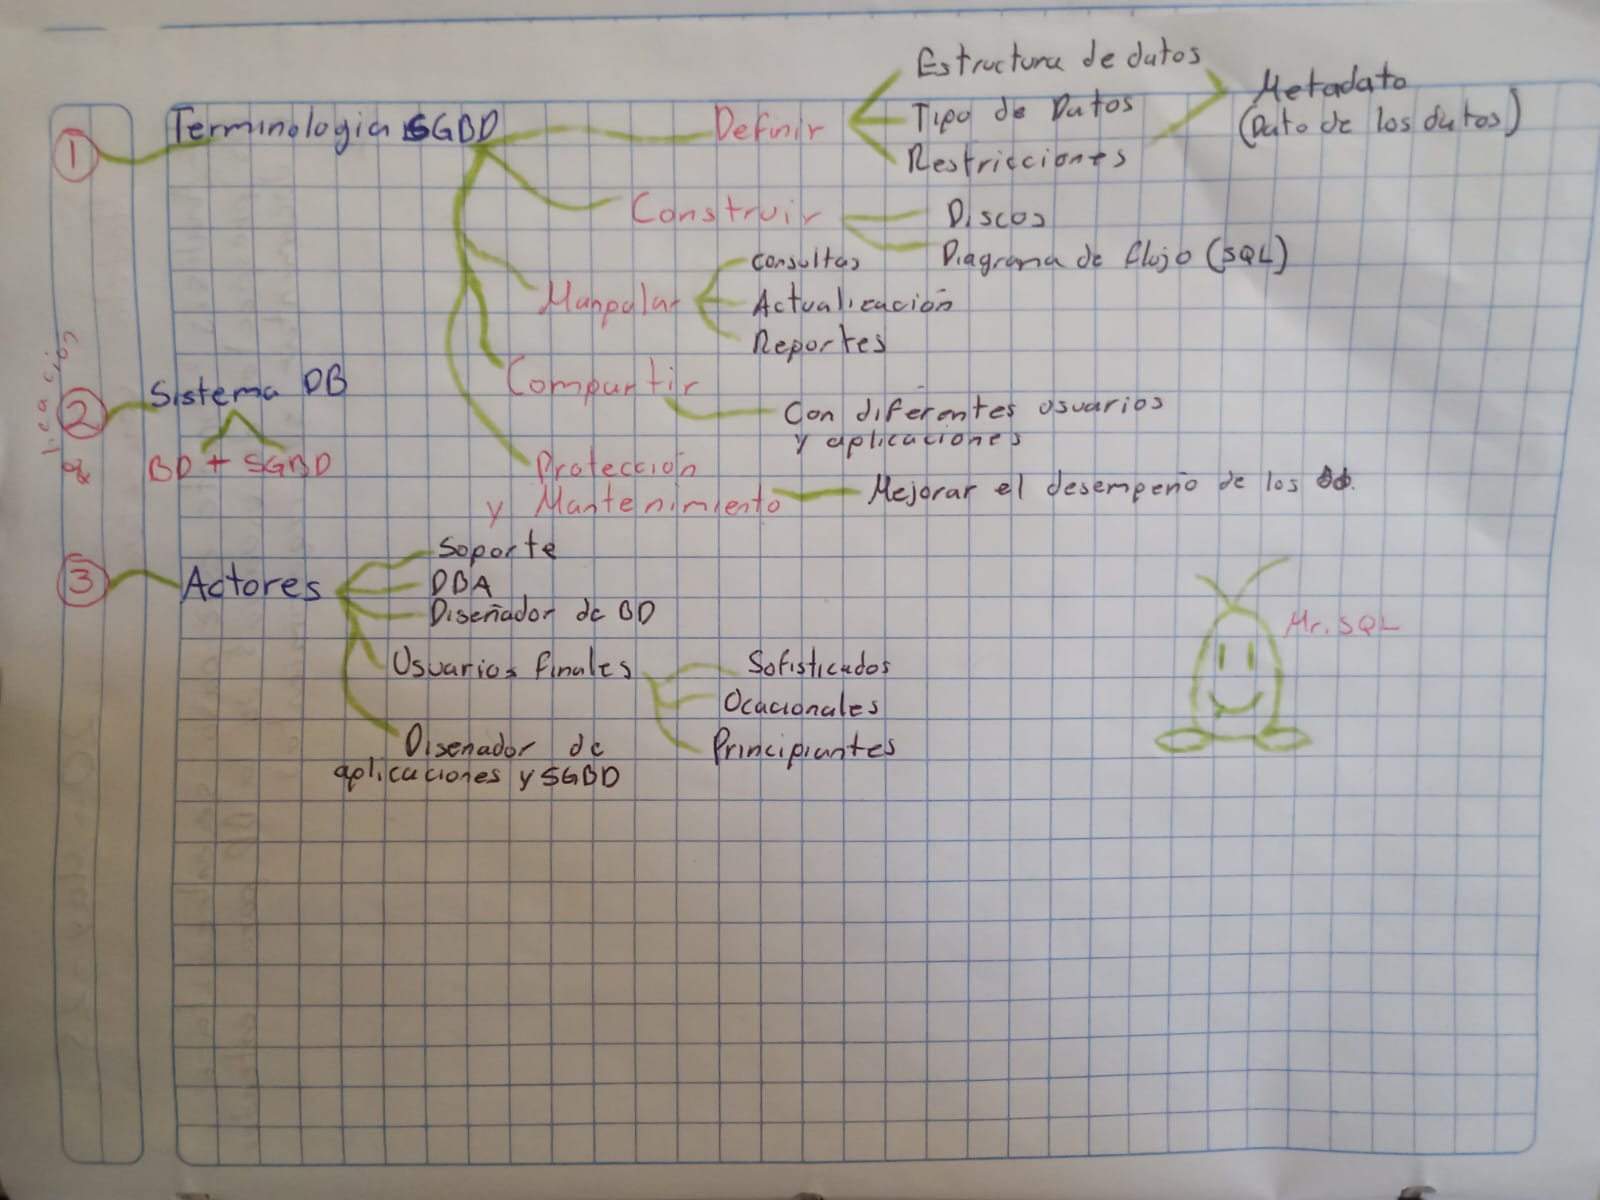 1
Terminologia SGBD
Definir
Estructura de datos
Tipo de Datos
Restricciones
Metadato
(Dato de los datos)
Construir
Discos
Diagrama de flujo (SQL)
Manpular
Consultas
Actualización
Reportes
Compartir
Con diferentes usuarios
y aplicaciones
Protección
y Mantenimiento
Mejorar el desempeño de los
2
Sistema DB
BD + SGBD
3
Actores
Soporte
DBA
Diseñador de BD
Usuarios finales
Sofisticados
Ocacionales
Principiantes
Disenador de
aplicaciones y SGBD
Mr. SQL